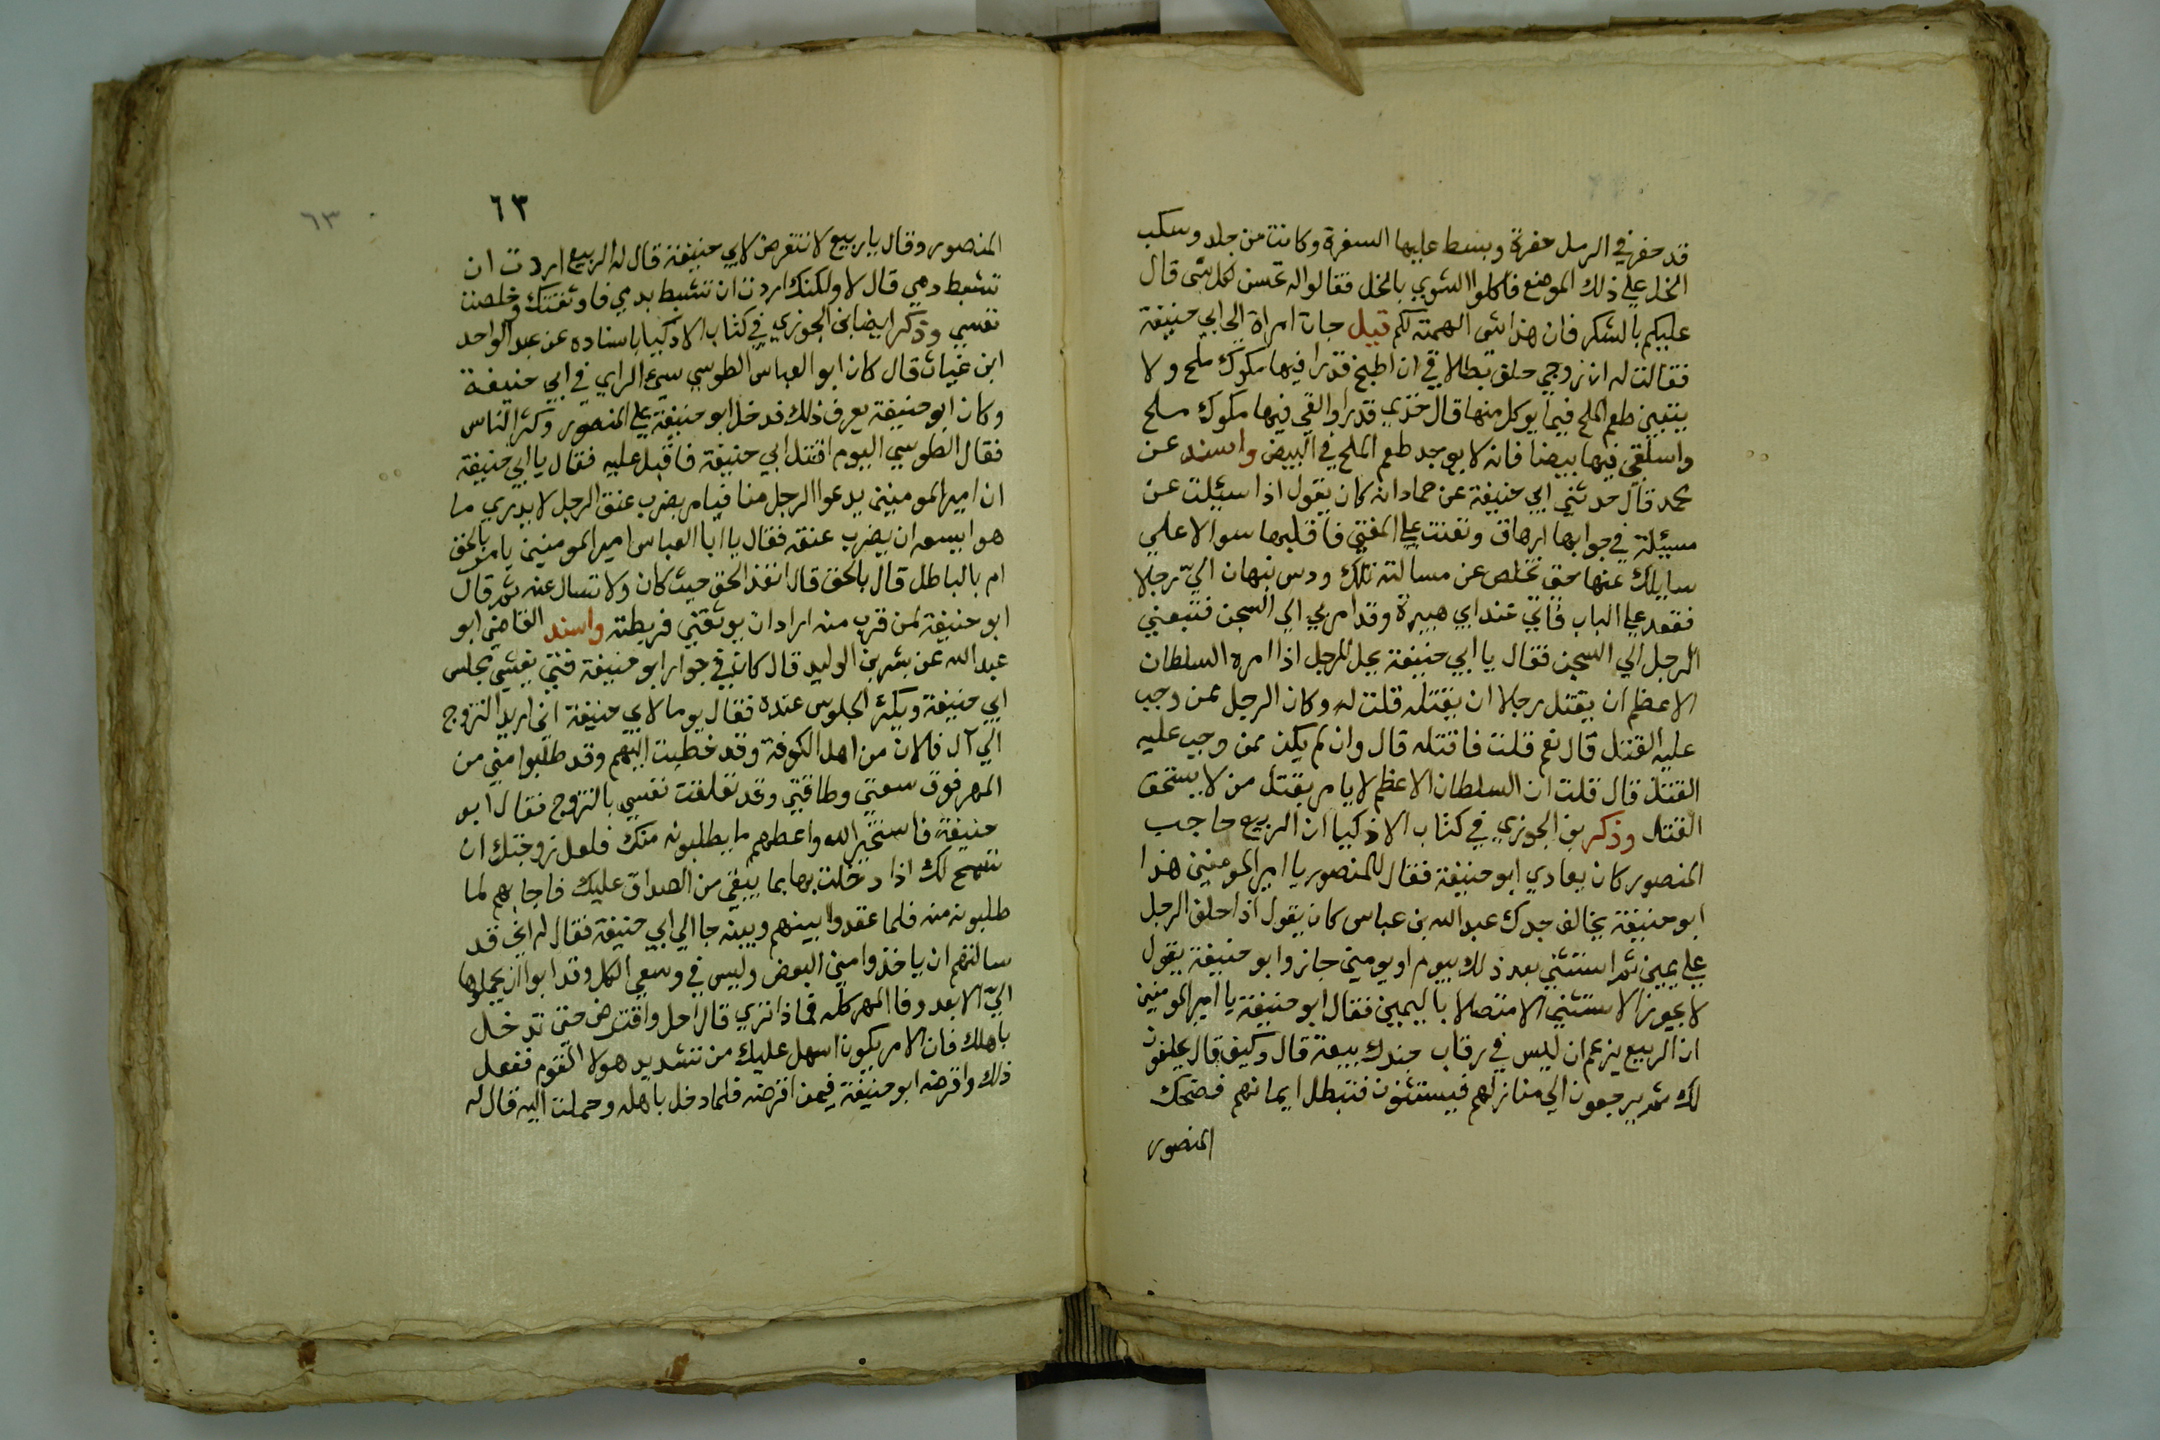 قد حفر في الرمل حفرة وبسط عليها السفرة وكانت من جلد وسكب
الخل علي ذلك الموضع فاكلوا الشوي بالخل فقالوا له تحسن كل شي قال
عليكم بالشكر فان هذا شي الهمته لكم قيل جات امراة الي ابي حنيفة
فقالت له ان زوجي حلق بطلاقي ان اطبخ قدرا فيها مكوك ملح ولا
يتبين طعم الملح فيما يوكل منها قال خذي قدرا والقي فيها مكوك ملح
واسلقي فيها بيضا فانه لا يوجد طعم الملح في البيض واسند عن
محمد قال حدثني ابي حنيفة عن حماد انه كان يقول اذا سيئلت عن
مسيئلة في جوابها ارهاق وتعنت علي المفتي فاقلبها سوالا علي
سايلك عنها حتى تخلص عن مسالته تلك ودس نبهان اليّ رجلا
فقعد علي الباب فاتي عند ابي هبيرة وقد امر بي الي السجن فتبعني
الرجل الي السجن فقال يا ابي حنيفة يحل للرجل اذا امره السلطان
الاعظم ان يقتل رجلا ان يقتله قلت له وكان الرجل ممن وجب
عليه القتل قال نعم قلت فاقتله قال وان لم يكن ممن وجب عليه
القتل قال قلت ان السلطان الاعظم لا يامر بقتل من لا يستحق
القتل وذكر بن الجوزي في كتاب الاذكيا ان الربيع حاجب
المنصور كان يعادي ابو حنيفة فقال للمنصور يا امير المومنين هذا
ابو حنيفة يخالف جدك عبد الله بن عباس كان يقول اذا حلق الرجل
علي يمين ثم استثني بعد ذلك بيوم او يومين جاز وابو حنيفة يقول
لا يجوز الاستثني الا متصلا باليمين فقال ابو حنيفة يا امير المومنين
ان الربيع يزعم ان ليس في رقاب جندك بيعة قال وكيف قال يحلفون
لك ثم يرجعون الي منازلهم فيستثنون فتبطل ايمانهم فضحك
المنصور
٦٣
٦٣
المنصور وقال يا ربيع لا تتعرض لابي حنيفة قال له الربيع اردت ان
تشيط دمي قال لا ولكنك اردت ان تشيط بدمي فاوثقتك وخلصت
نفسي وذكر ايضا بن الجوزي في كتاب الاذكيا باسناده عن عبد الواحد
ابن غياث قال كان ابو العباس الطوسي سيء الراي في ابي حنيفة
وكان ابو حنيفة يعرف ذلك فدخل ابو حنيفة علي المنصور وكثر الناس
فقال الطوسي اليوم اقتل ابي حنيفة فاقبل عليه فقال يا ابي حنيفة
ان امير المومنين يدعوا الرجل منا فيامر بضرب عنق الرجل لا يدري ما
هو ايسعه ان يضرب عنقه فقال يا ابا العباس امير المومنين يامر بالحق
ام بالباطل قال بالحق قال انفذ الحق حيث كان ولا تسال عنه ثم قال
ابو حنيفة لمن قرب منه اراد ان يوثقني فربطته واسند القاضي ابو
عبد الله عن بشر بن الوليد قال كان في جوار ابو حنيفة فتي يغشي مجلس
ابي حنيفة ويكثر الجلوس عنده فقال يوما لابي حنيفة اني اريد التزوج
الي آل فلان من اهل الكوفة وقد خطبت اليهم وقد طلبوا مني من
المهر فوق سعتي وطاقتي وقد تعلقت نفسي بالتزوج فقال ابو
حنيفة فاستخير الله واعطهم ما يطلبونه منك فلعل زوجتك ان
تسمح لك اذا دخلت بها بما يبقي من الصداق عليك فاجابهم لما
طلبونه منه فلما عقدوا بينهم وبينه جا الي ابي حنيفة فقال له اني قد
سالتهم ان ياخذوا مني البعض وليس في وسعي الكل وقد ابوا ان يحملوها
اليّ الا بعد وفا المهر كله فماذا تري قال احل واقترض حتي تدخل
باهلك فان الامر يكون اسهل عليك من تشديد هولا القوم ففعل
ذلك واقرضه ابو حنيفة فيمن اقرضه فلما دخل باهله وحملت اليه قال له